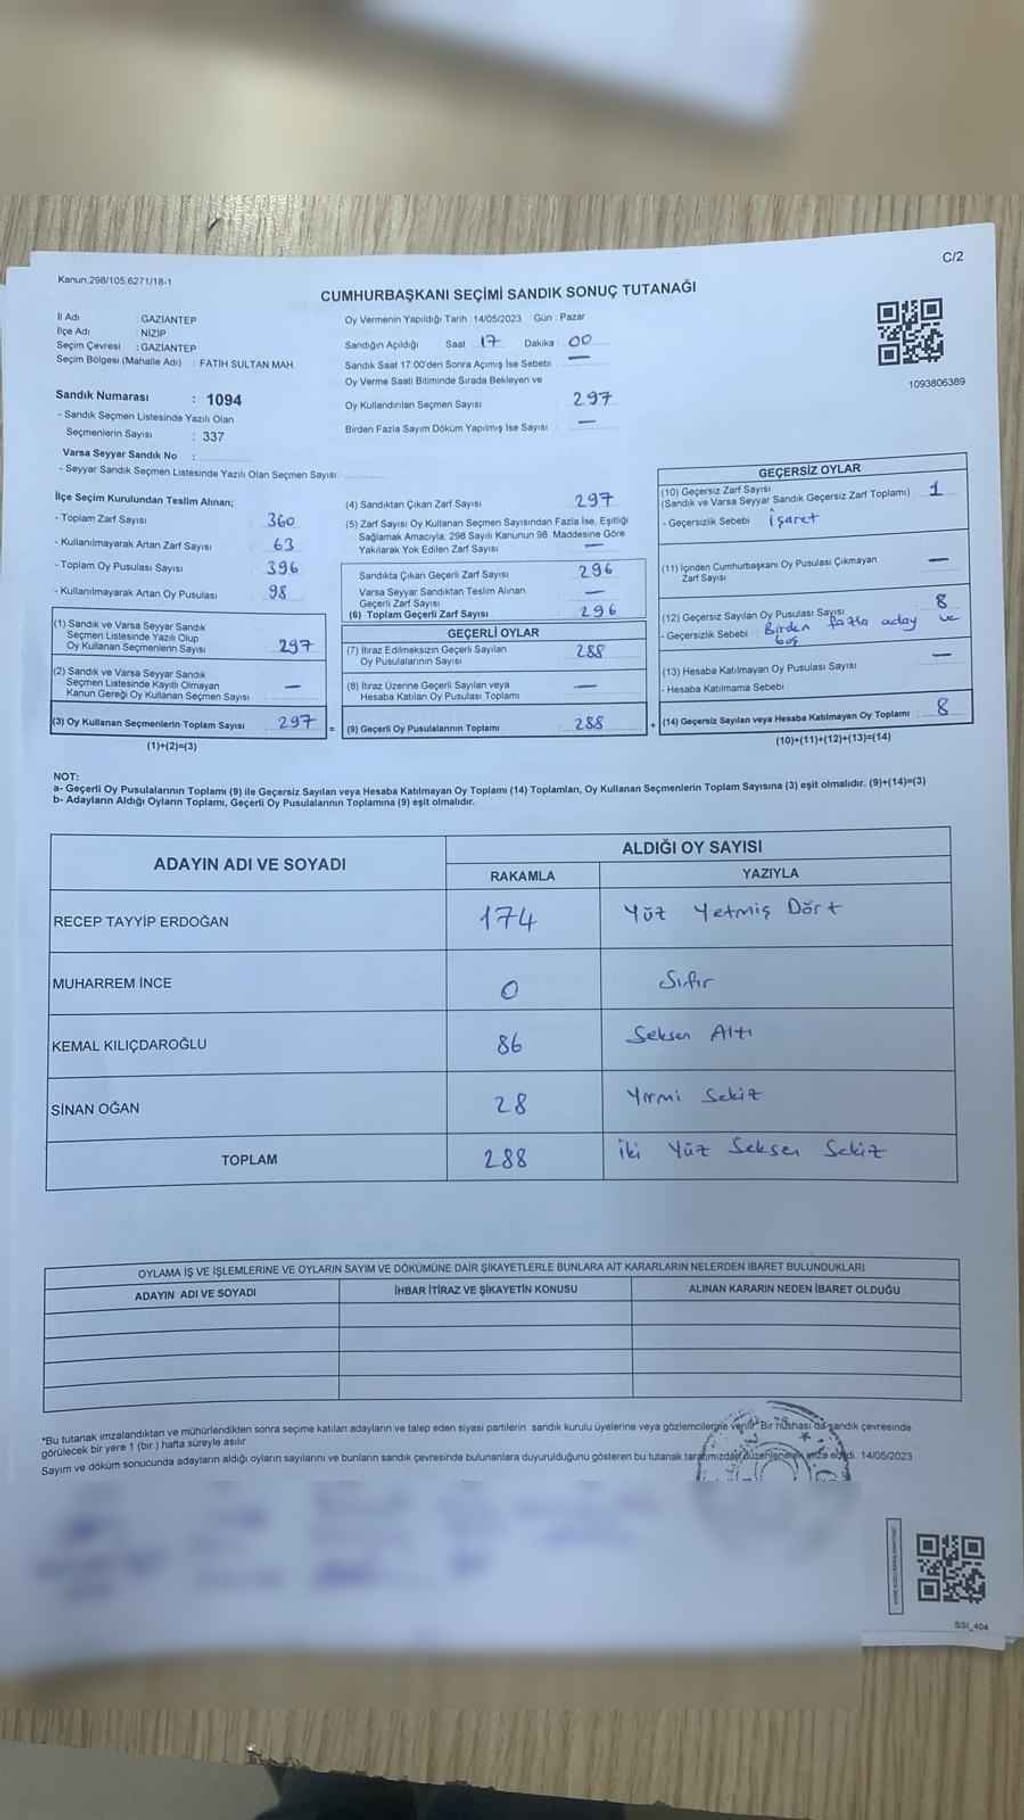 C/2
Kanun.298/105.6271/18-1
CUMHURBAŞKANI SEÇİMİ SANDIK SONUÇ TUTANAĞI
İl Adı : GAZİANTEP
İlçe Adı : NİZİP
Seçim Çevresi : GAZİANTEP
Seçim Bölgesi (Mahalle Adı) : FATİH SULTAN MAH.
Sandık Numarası : 1094
- Sandık Seçmen Listesinde Yazılı Olan
Seçmenlerin Sayısı : 337
Varsa Seyyar Sandık No :
- Seyyar Sandık Seçmen Listesinde Yazılı Olan Seçmen Sayısı
Oy Vermenin Yapıldığı Tarih : 14/05/2023 Gün : Pazar
Sandığın Açıldığı Saat 17 Dakika 00
Sandık Saat 17:00'den Sonra Açımış İse Sebebi —
Oy Verme Saati Bitiminde Sırada Bekleyen ve
Oy Kullandırılan Seçmen Sayısı 297
Birden Fazla Sayım Döküm Yapılmış İse Sayısı —
1093806389
İlçe Seçim Kurulundan Teslim Alınan;
- Toplam Zarf Sayısı 360
- Kullanılmayarak Artan Zarf Sayısı 63
- Toplam Oy Pusulası Sayısı 396
- Kullanılmayarak Artan Oy Pusulası 98
(1) Sandık ve Varsa Seyyar Sandık
Seçmen Listesinde Yazılı Olup
Oy Kullanan Seçmenlerin Sayısı 297
(2) Sandık ve Varsa Seyyar Sandık
Seçmen Listesinde Kayıtlı Olmayan
Kanun Gereği Oy Kullanan Seçmen Sayısı —
(3) Oy Kullanan Seçmenlerin Toplam Sayısı 297
(1)+(2)=(3)
=
(4) Sandıktan Çıkan Zarf Sayısı 297
(5) Zarf Sayısı Oy Kullanan Seçmen Sayısından Fazla İse, Eşitliği
Sağlamak Amacıyla; 298 Sayılı Kanunun 98. Maddesine Göre
Yakılarak Yok Edilen Zarf Sayısı —
Sandıkta Çıkan Geçerli Zarf Sayısı 296
Varsa Seyyar Sandıktan Teslim Alınan
Geçerli Zarf Sayısı —
(6) Toplam Geçerli Zarf Sayısı 296
GEÇERLİ OYLAR
(7) İtiraz Edilmeksizin Geçerli Sayılan
Oy Pusulalarının Sayısı 288
(8) İtiraz Üzerine Geçerli Sayılan veya
Hesaba Katılan Oy Pusulası Toplamı —
(9) Geçerli Oy Pusulalarının Toplamı 288
+
GEÇERSİZ OYLAR
(10) Geçersiz Zarf Sayısı
(Sandık ve Varsa Seyyar Sandık Geçersiz Zarf Toplamı) 1
- Geçersizlik Sebebi İşaret
(11) İçinden Cumhurbaşkanı Oy Pusulası Çıkmayan
Zarf Sayısı —
(12) Geçersiz Sayılan Oy Pusulası Sayısı 8
- Geçersizlik Sebebi Birden fazla aday ve
boş
(13) Hesaba Katılmayan Oy Pusulası Sayısı —
- Hesaba Katılmama Sebebi
(14) Geçersiz Sayılan veya Hesaba Katılmayan Oy Toplamı 8
(10)+(11)+(12)+(13)=(14)
NOT:
a- Geçerli Oy Pusulalarının Toplamı (9) ile Geçersiz Sayılan veya Hesaba Katılmayan Oy Toplamı (14) Toplamları, Oy Kullanan Seçmenlerin Toplam Sayısına (3) eşit olmalıdır. (9)+(14)=(3)
b- Adayların Aldığı Oyların Toplamı, Geçerli Oy Pusulalarının Toplamına (9) eşit olmalıdır.
ADAYIN ADI VE SOYADI ALDIĞI OY SAYISI
RAKAMLA YAZIYLA
RECEP TAYYİP ERDOĞAN 174 Yüz Yetmiş Dört
MUHARREM İNCE 0 Sıfır
KEMAL KILIÇDAROĞLU 86 Seksen Altı
SİNAN OĞAN 28 Yirmi Sekiz
TOPLAM 288 İki Yüz Seksen Sekiz
OYLAMA İŞ VE İŞLEMLERİNE VE OYLARIN SAYIM VE DÖKÜMÜNE DAİR ŞİKAYETLERLE BUNLARA AİT KARARLARIN NELERDEN İBARET BULUNDUKLARI
ADAYIN ADI VE SOYADI İHBAR İTİRAZ VE ŞİKAYETİN KONUSU ALINAN KARARIN NEDEN İBARET OLDUĞU
*Bu tutanak imzalandıktan ve mühürlendikten sonra seçime katılan adayların ve talep eden siyasi partilerin sandık kurulu üyelerine veya gözlemcilerine verilir. Bir nüshası da sandık çevresinde
görülecek bir yere 1 (bir) hafta süreyle asılır
Sayım ve döküm sonucunda adayların aldığı oyların sayılarını ve bunların sandık çevresinde bulunanlara duyurulduğunu gösteren bu tutanak tarafımızdan düzenlenerek imza edildi. 14/05/2023
SSI_404